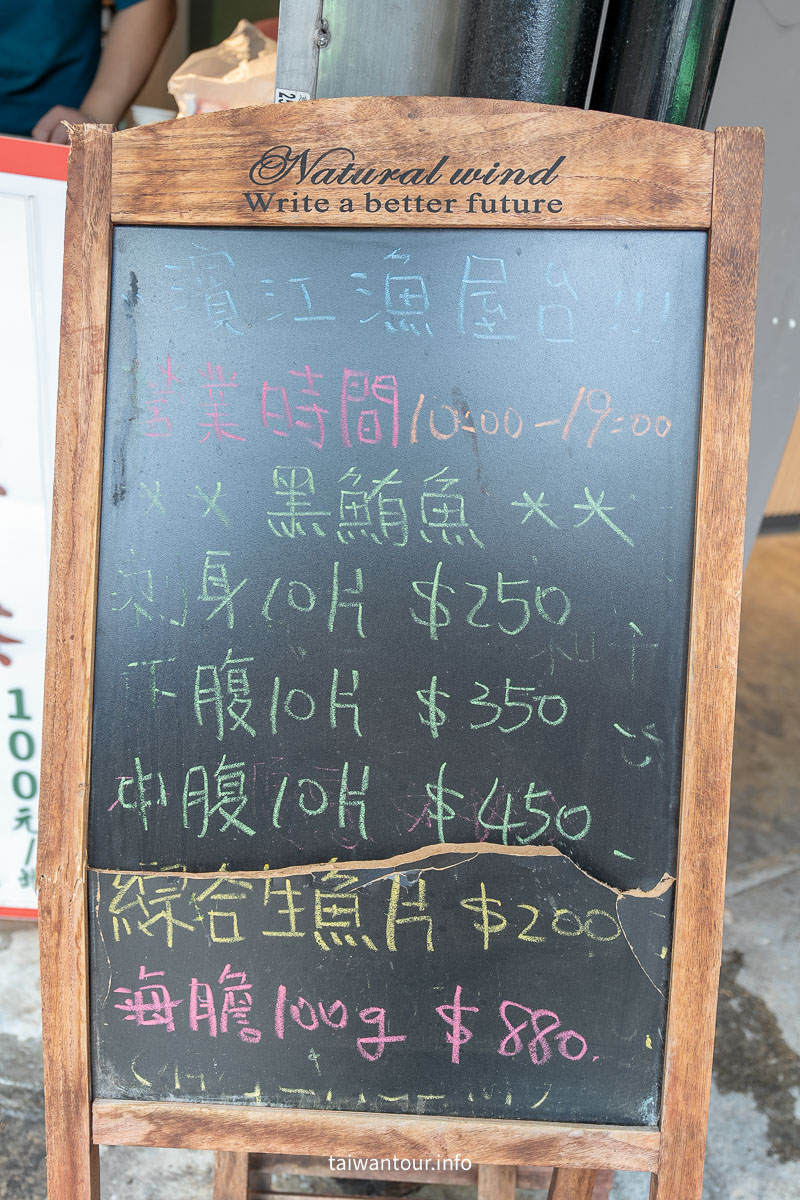 Natural wind
Write a better future
濱江漁屋台
營業時間10:00-19:00
** 黑鮪魚 **
刺身10片 $250
下腹10片 $350
中腹10片 $450
綜合生魚片 $200
海膽100g $880.
100元/
taiwantour.info